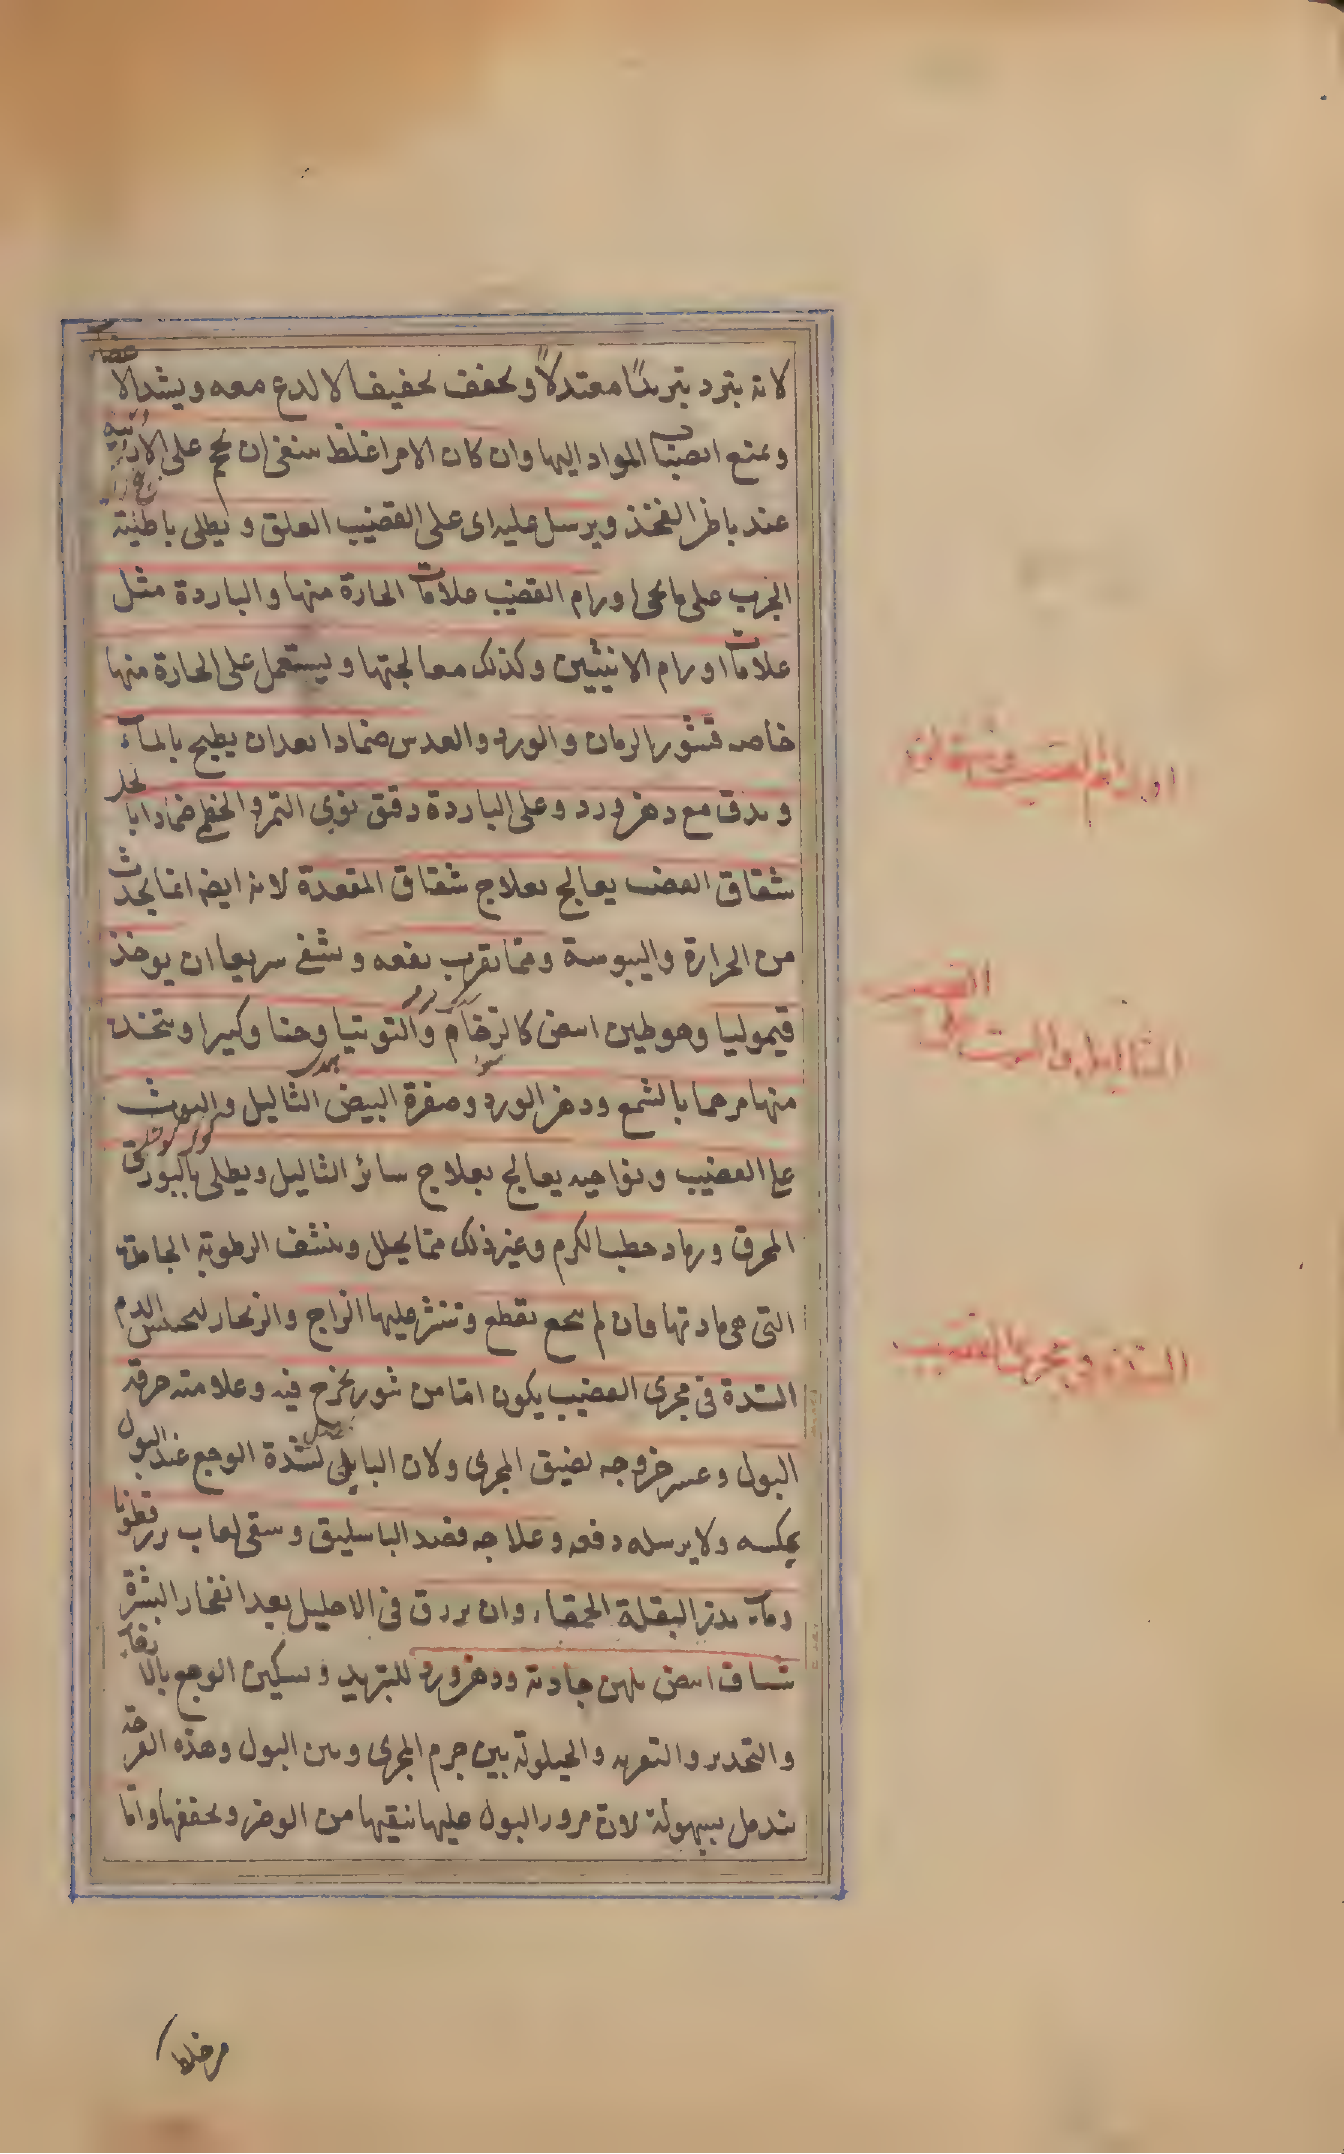 لانه يبرد تبريدًا معتدلًا ويجفف تجفيفا لا لدع معه ويشد الاعضاء
ويمنع انصباب المواد اليها وان كان الامر اغلظ ينبغى ان يحجم على الاربية
عند باطن الفخذ ويرسل عليه اى على القضيب العلق و يطلى باطلية
الجرب على ما يجئ اورام القضيب علامات الحارة منها والباردة مثل
علامات اورام الانيثين وكذلك معالجتها ويستعمل على الحارة منها
خاصه قشور الرمان والورد والعدس ضمادا بعد ان يطبخ بالماء
ويدق مع دهن ورد وعلى الباردة دقق نوى التمر والخطمى ضمادا بالخل
شقاق القضيب يعالج بعلاج شقاق المقعدة لانه ايضا انما يحدث
من الحرارة واليبوسة ومما يقرب نفعه ويشفى سريعا ان يوخذ
قيموليا وهو طين ابيض كالرخام والتوتيا وحنا وكثيرا ويتخذ
منها مرهما بالشمع ودهن الورد وصفرة البيض الثاليل والتوث
على القضيب ونواحيه يعالج بعلاج سائر الثاليل ويطلى بالبورق
المحرق ورماد حطب الكرم وغير ذلك مما يحلل وينشف الرطوبة الجامدة
التى هى مادتها وان لم ينجع تقطع وتنثر عليها الزاج والزنجار ليحبس الدم
السدة فى مجرى القضيب يكون اما من بثور يخرج فيه وعلامته حرقة
البول وعسر خروجه لضيق المجرى ولان البايل لشدة الوجع عند البول
يحبسه ولا يرسله دفعه وعلاجه فصد الباسليق وسقى لعاب بزرقطونا
وماء بذر البقلة الحمقاء وان يزرق فى الاحليل بعد انفجار البثرة
شياف ابيض بلبن جارية ودهن ورد للتبريد وتسكين الوجع بالارخاء
والتخدير والتغرية والحيلولة بين جرم المجرى وبين البول وهذه القرحة
يندمل بسهولة لان مرور البول عليها ينقيها من الوضر ويجففها واما
اورام القضيب وشقاقه
الثاليل والتوث على القضيب
السدة فى مجرى القضيب
من خلط